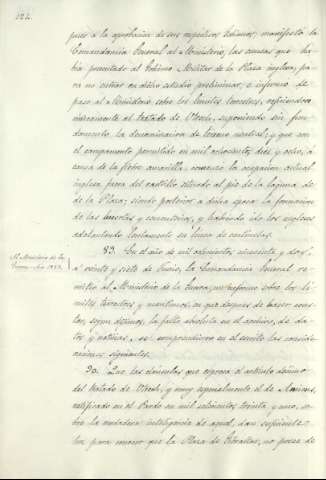 122.
pues a la aprobacion de sus respectivos Gobiernos; manifestó la
Comandancia General al Ministerio, las causas que ha-
bia presentado el Gobierno Militar de la Plaza inglesa, pa-
ra no entrar en dicho estudio preliminar, e informó de
paso al Ministerio sobre los limites terrestres, refiriendose
unicamente al tratado de Utrech, suponiendo sin fun-
damento la denominacion de terreno neutral; y que con
el campamento permitido en mil ochocientos diez y ocho, á
causa de la fiebre amarilla, comenzó la ocupacion actual
inglesa fuera del rastrillo situado al pié de la laguna de
de la Plaza; siendo posterior a dicha epoca la formacion
de las huertas y cementerios, y habiendo ido los ingleses
adelantando lentamente su linea de centinelas.
Al Ministerio de la
Guerra. Año 1852.
89. En el año de mil ochocientos cincuenta y dos y
á veinte y siete de Junio, la Comandancia General re-
mitió al Ministerio de la Guerra, un informe sobre los li-
mites terrestres y maritimos, en que despues de hacer cons-
tar, segun decimos, la falta absoluta en el archivo, de da-
tos y noticias, se comprendieron en el escrito las conside-
raciones siguientes.
90. Que las clausulas que expresa el articulo décimo
del tratado de Utrech, y muy especialmente el de Amiens,
ratificado en el Pardo en mil setecientos treinta y uno, so-
bre la verdadera inteligencia de aquel, dan suficiente
luz para conocer que la Plaza de Gibraltar, no posee de